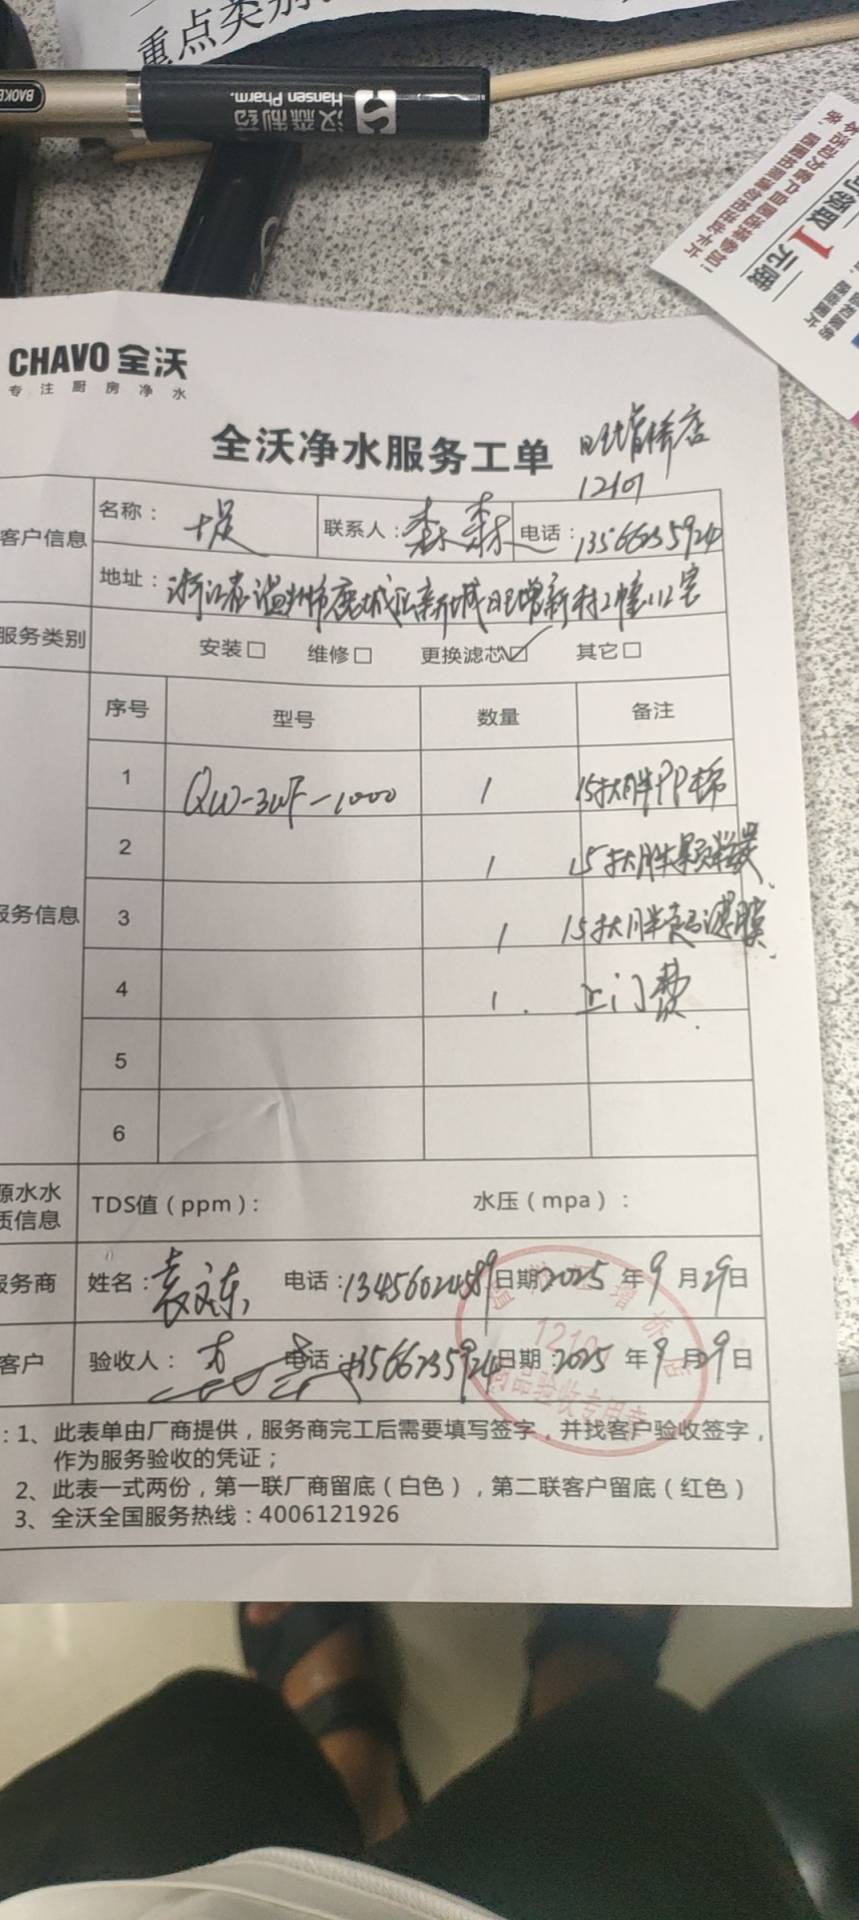 重点类别
BAOKE
汉森制药
Hansen Pharm.
可领取1元
CHAVO 全沃
专注厨房净水
全沃净水服务工单
旺增桥店
12101
客户信息
名称：
联系人：森森
电话：13566235924
地址：浙江省温州市鹿城区新城旺增新村2幢112室
服务类别 安装□ 维修□ 更换滤芯☑ 其它□
服务信息
序号 型号 数量 备注
1 QW-3WF-1000 1 15寸大胖PP棉
2 1 15寸大胖颗粒炭
3 1 15寸大胖 滤膜
4 1 上门费
5
6
源水水质信息 TDS值（ppm）： 水压（mpa）：
服务商 姓名：袁文东 电话：13456024589 日期：2025 年 9 月 29 日
客户 验收人： 电话：13566235924 日期：2025 年 9 月 29 日
增桥店
12101
商品验收专用章
：1、此表单由厂商提供，服务商完工后需要填写签字，并找客户验收签字，
作为服务验收的凭证；
2、此表一式两份，第一联厂商留底（白色），第二联客户留底（红色）
3、全沃全国服务热线：4006121926